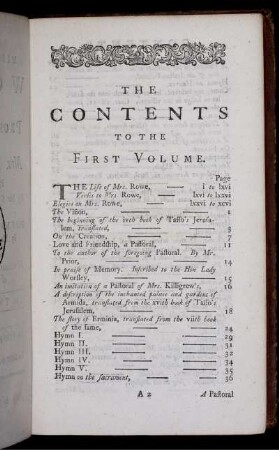 THE
CONTENTS
TO THE
FIRST VOLUME.
Page
THE Life of Mrs. Rowe, I to lxvi
Verses to Mrs. Rowe, lxvi to lxxvi
Elegies on Mrs. Rowe, lxxvi to xcvi
The Vision, 1
The beginning of the ivth book of Tasso's Jerusa-
lem, translated, 3
On the Creation, 7
Love and Friendship, a Pastoral, 11
To the author of the foregoing Pastoral. By Mr.
Prior, 14
In praise of Memory. Inscribed to the Hon Lady
Worsley, 15
An imitation of a Pastoral of Mrs. Killigrew's, 16
A description of the inchanted palace and gardens of
Armida, translated from the xvith book of Tasso's
Jerusalem, 18
The story of Erminia, translated from the viith book
of the same, 24
Hymn I. 29
Hymn II. 31
Hymn III. 32
Hymn IV. 34
Hymn V. 35
Hymn on the sacrament, 36
A 2 A Pastoral